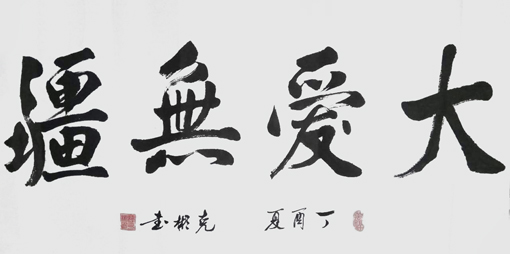 大愛無疆
丁酉夏 克彬书